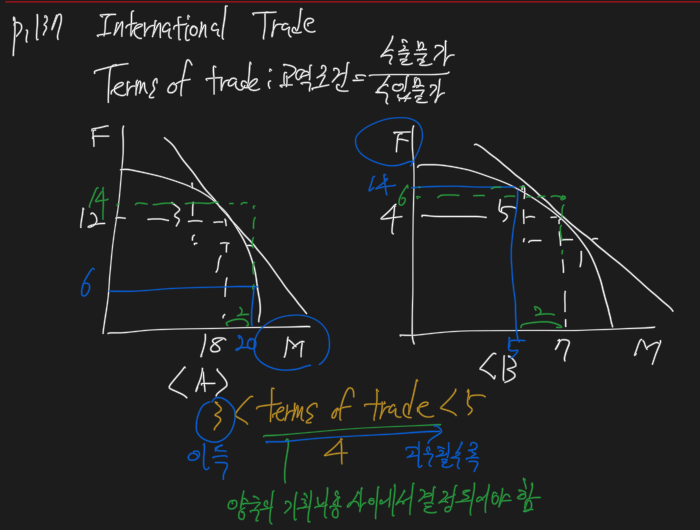 p.137 International Trade
Terms of trade : 교역조건 = 수출물가
수입물가
F
14
12
3
1
6
2
18
20
M
<A>
F
14
6
4
5
1
2
5
7
M
<B
3 < terms of trade < 5
이득
4
양국의 기회비용 사이에서 결정되어야 함